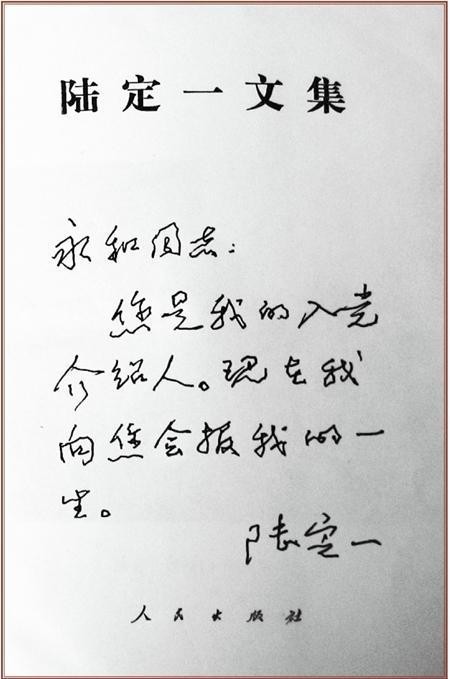 陆定一文集
永和同志：
您是我的入党
介绍人。现在我
向您会报我的一
生。
陆定一
人民出版社